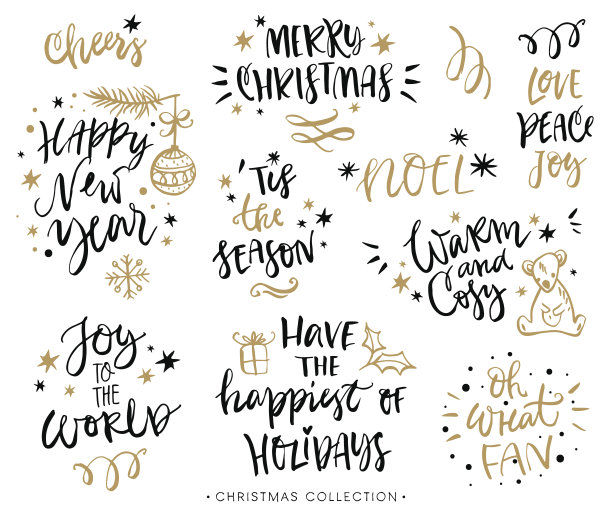 Cheers
MERRY
CHRISTMAS
LOVE
PEACE
Joy
HAPPY
New
year
'Tis
the
SEASON
NOEL
WARM
and
Cosy
Joy
TO
THE
WORLD
HAVE
THE
happiest OF
HOLIDAYS
oh
what
FAN
• CHRISTMAS COLLECTION •